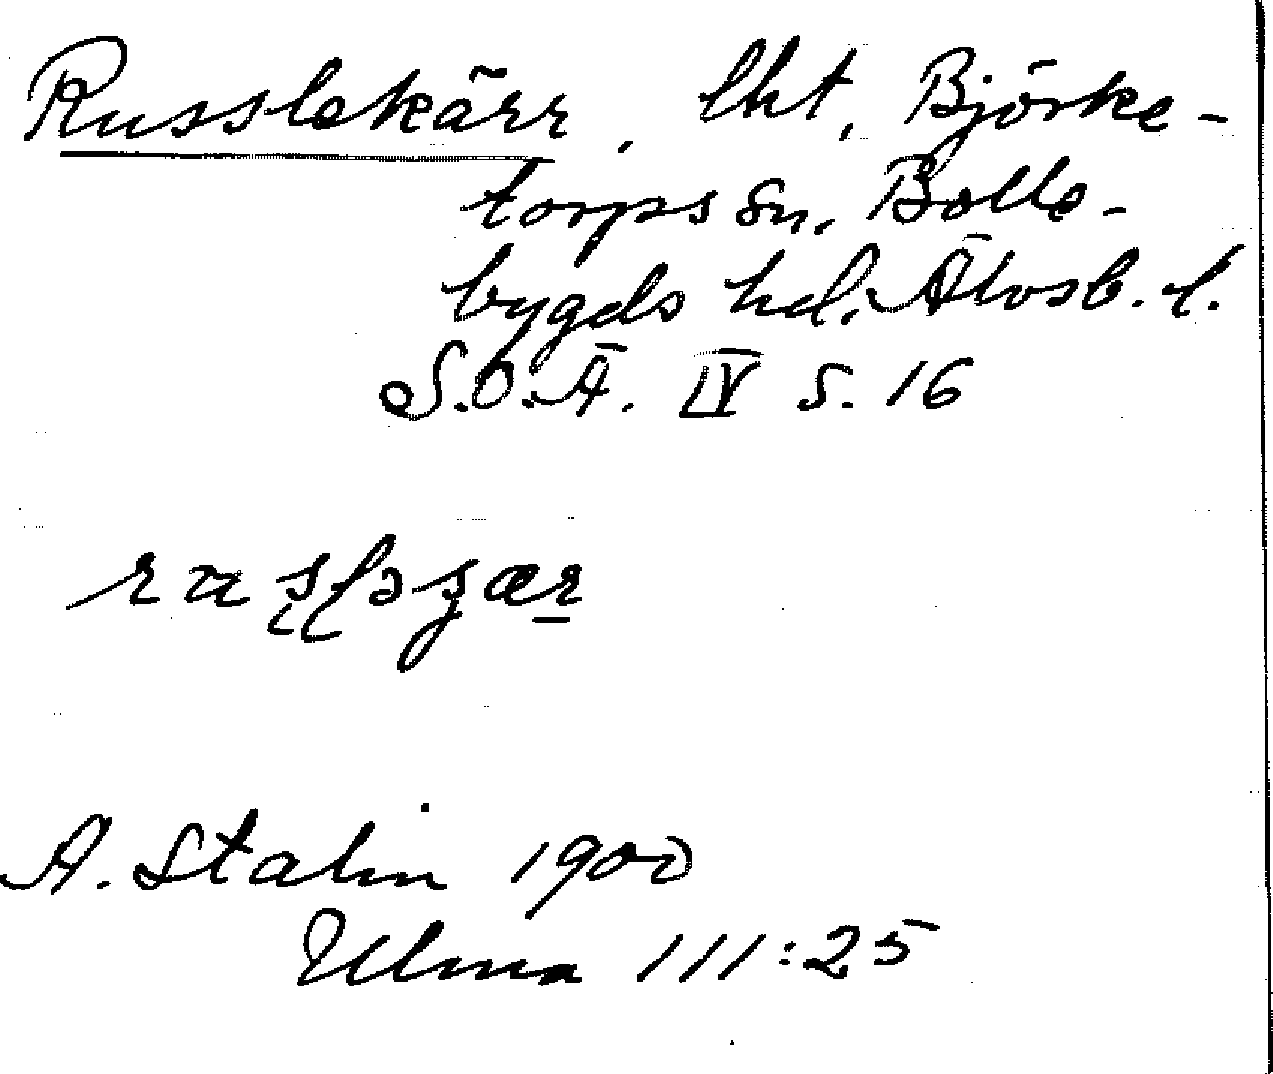 Russlekärr, lht, Björke-
torps sn, Bolle-
bygds hd. Älvsb. l.
S.O.Ä. IV s. 16
A. Stalin 1900
Ulma 111:25